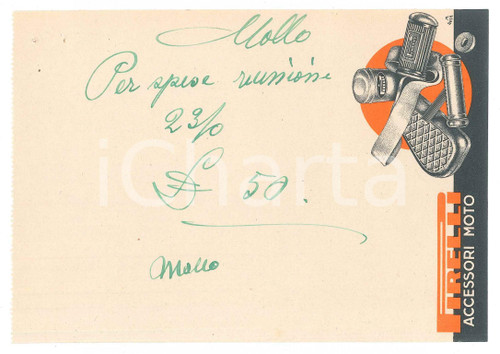 Mollo
Per spese riunione
23/0
£ 50.
Mollo
PIRELLI
ACCESSORI MOTO
iCharta